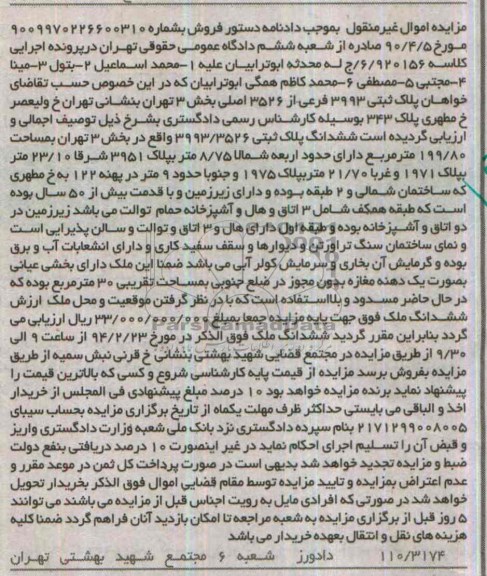 مزایده اموال غیرمنقول بموجب دادنامه دستور فروش بشماره ۹۰۰۹۹۷۰۲۲۶۶۰۰۳۱۰
مورخ ۹۰/۴/۵ صادره از شعبه ششم دادگاه عمومی حقوقی تهران درپرونده اجرایی
کلاسه ۶/۹۲۰۱۵۶/ج له محدثه ابوترابیان علیه ۱-محمد اسماعیل ۲-بتول ۳-مینا
۴-مجتبی ۵-مصطفی ۶-محمد کاظم همگی ابوترابیان که در این خصوص حسب تقاضای
خواهان پلاک ثبتی ۳۹۹۳ فرعی از ۳۵۲۶ اصلی بخش ۳ تهران بنشانی تهران خ ولیعصر
خ مطهری پلاک ۳۴۳ بوسیله کارشناس رسمی دادگستری بشرح ذیل توصیف اجمالی و
ارزیابی گردیده است ششدانگ پلاک ثبتی ۳۹۹۳/۳۵۲۶ واقع در بخش ۳ تهران بمساحت
۱۹۹/۸۰ مترمربع دارای حدود اربعه شمالا ۸/۷۵ متر بپلاک ۳۹۵۱ شرقا ۲۳/۱۰ متر
بپلاک ۱۹۷۱ و غربا ۲۱/۷۰ متربپلاک ۱۹۷۵ و جنوبا حدود ۹ متر در پهنه ۱۲۲ به خ مطهری
که ساختمان شمالی و ۲ طبقه بوده و دارای زیرزمین و با قدمت بیش از ۵۰ سال بوده
است که طبقه همکف شامل ۳ اتاق و هال و آشپزخانه حمام توالت می باشد زیرزمین در
دو اتاق و آشپزخانه بوده و طبقه اول دارای هال و ۳ اتاق و توالت و سالن پذیرایی است
و نمای ساختمان سنگ تراورتن و دیوارها و سقف سفید کاری و دارای انشعابات آب و برق
بوده و گرمایش آن بخاری و سرمایش کولر آبی می باشد ضمنا این ملک دارای بخشی عیانی
بصورت یک دهنه مغازه بدون مجوز در ضلع جنوبی بمساحت تقریبی ۳۰ مترمربع بوده که
در حال حاضر مسدود و بلااستفاده است که با در نظر گرفتن موقعیت و محل ملک ارزش
ششدانگ ملک فوق جهت پایه مزایده جمعا بمبلغ ۳۳/۰۰۰/۰۰۰/۰۰۰ ریال ارزیابی می
گردد بنابراین مقرر گردید ششدانگ ملک فوق الذکر در مورخ ۹۴/۲/۲۳ از ساعت ۹ الی
۹/۳۰ از طریق مزایده در مجتمع قضایی شهید بهشتی بنشانی خ قرنی نبش سمیه از طریق
مزایده بفروش برسد مزایده از قیمت پایه کارشناسی شروع و کسی که بالاترین قیمت را
پیشنهاد نماید برنده مزایده خواهد بود ۱۰ درصد مبلغ پیشنهادی فی المجلس از خریدار
اخذ و الباقی می بایستی حداکثر ظرف مهلت یکماه از تاریخ برگزاری مزایده بحساب سیبای
۲۱۷۱۲۹۹۰۰۸۰۰۵ بنام سپرده دادگستری نزد بانک ملی شعبه وزارت دادگستری واریز
و قبض آن را تسلیم اجرای احکام نماید در غیر اینصورت ۱۰ درصد دریافتی بنفع دولت
ضبط و مزایده تجدید خواهد شد بدیهی است در صورت پرداخت کل ثمن در موعد مقرر و
عدم اعتراض بمزایده و تایید مزایده توسط مقام قضایی اموال فوق الذکر بخریدار تحویل
خواهد شد در صورتی که افرادی مایل به رویت اجناس قبل از مزایده می باشند می توانند
۵ روز قبل از برگزاری مزایده به شعبه مراجعه تا امکان بازدید آنان فراهم گردد ضمنا کلیه
هزینه های نقل و انتقال بعهده خریدار می باشد
۱۱۰/۳۱۷۴ دادورز شعبه ۶ مجتمع شهید بهشتی تهران